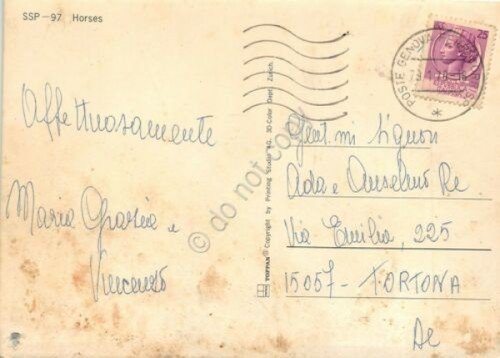 SSP-97 Horses
25
POSTE GENOVA
Affettuosamente
Maria Grazia e
Vincenzo
TOPPAN Copyright by Printing Studio AG. 3D-Color Dept. Zürich.
© do not copy
Gent.mi Signori
Ada e Anselmo Re
Via Emilia, 225
15057- TORTONA
Al